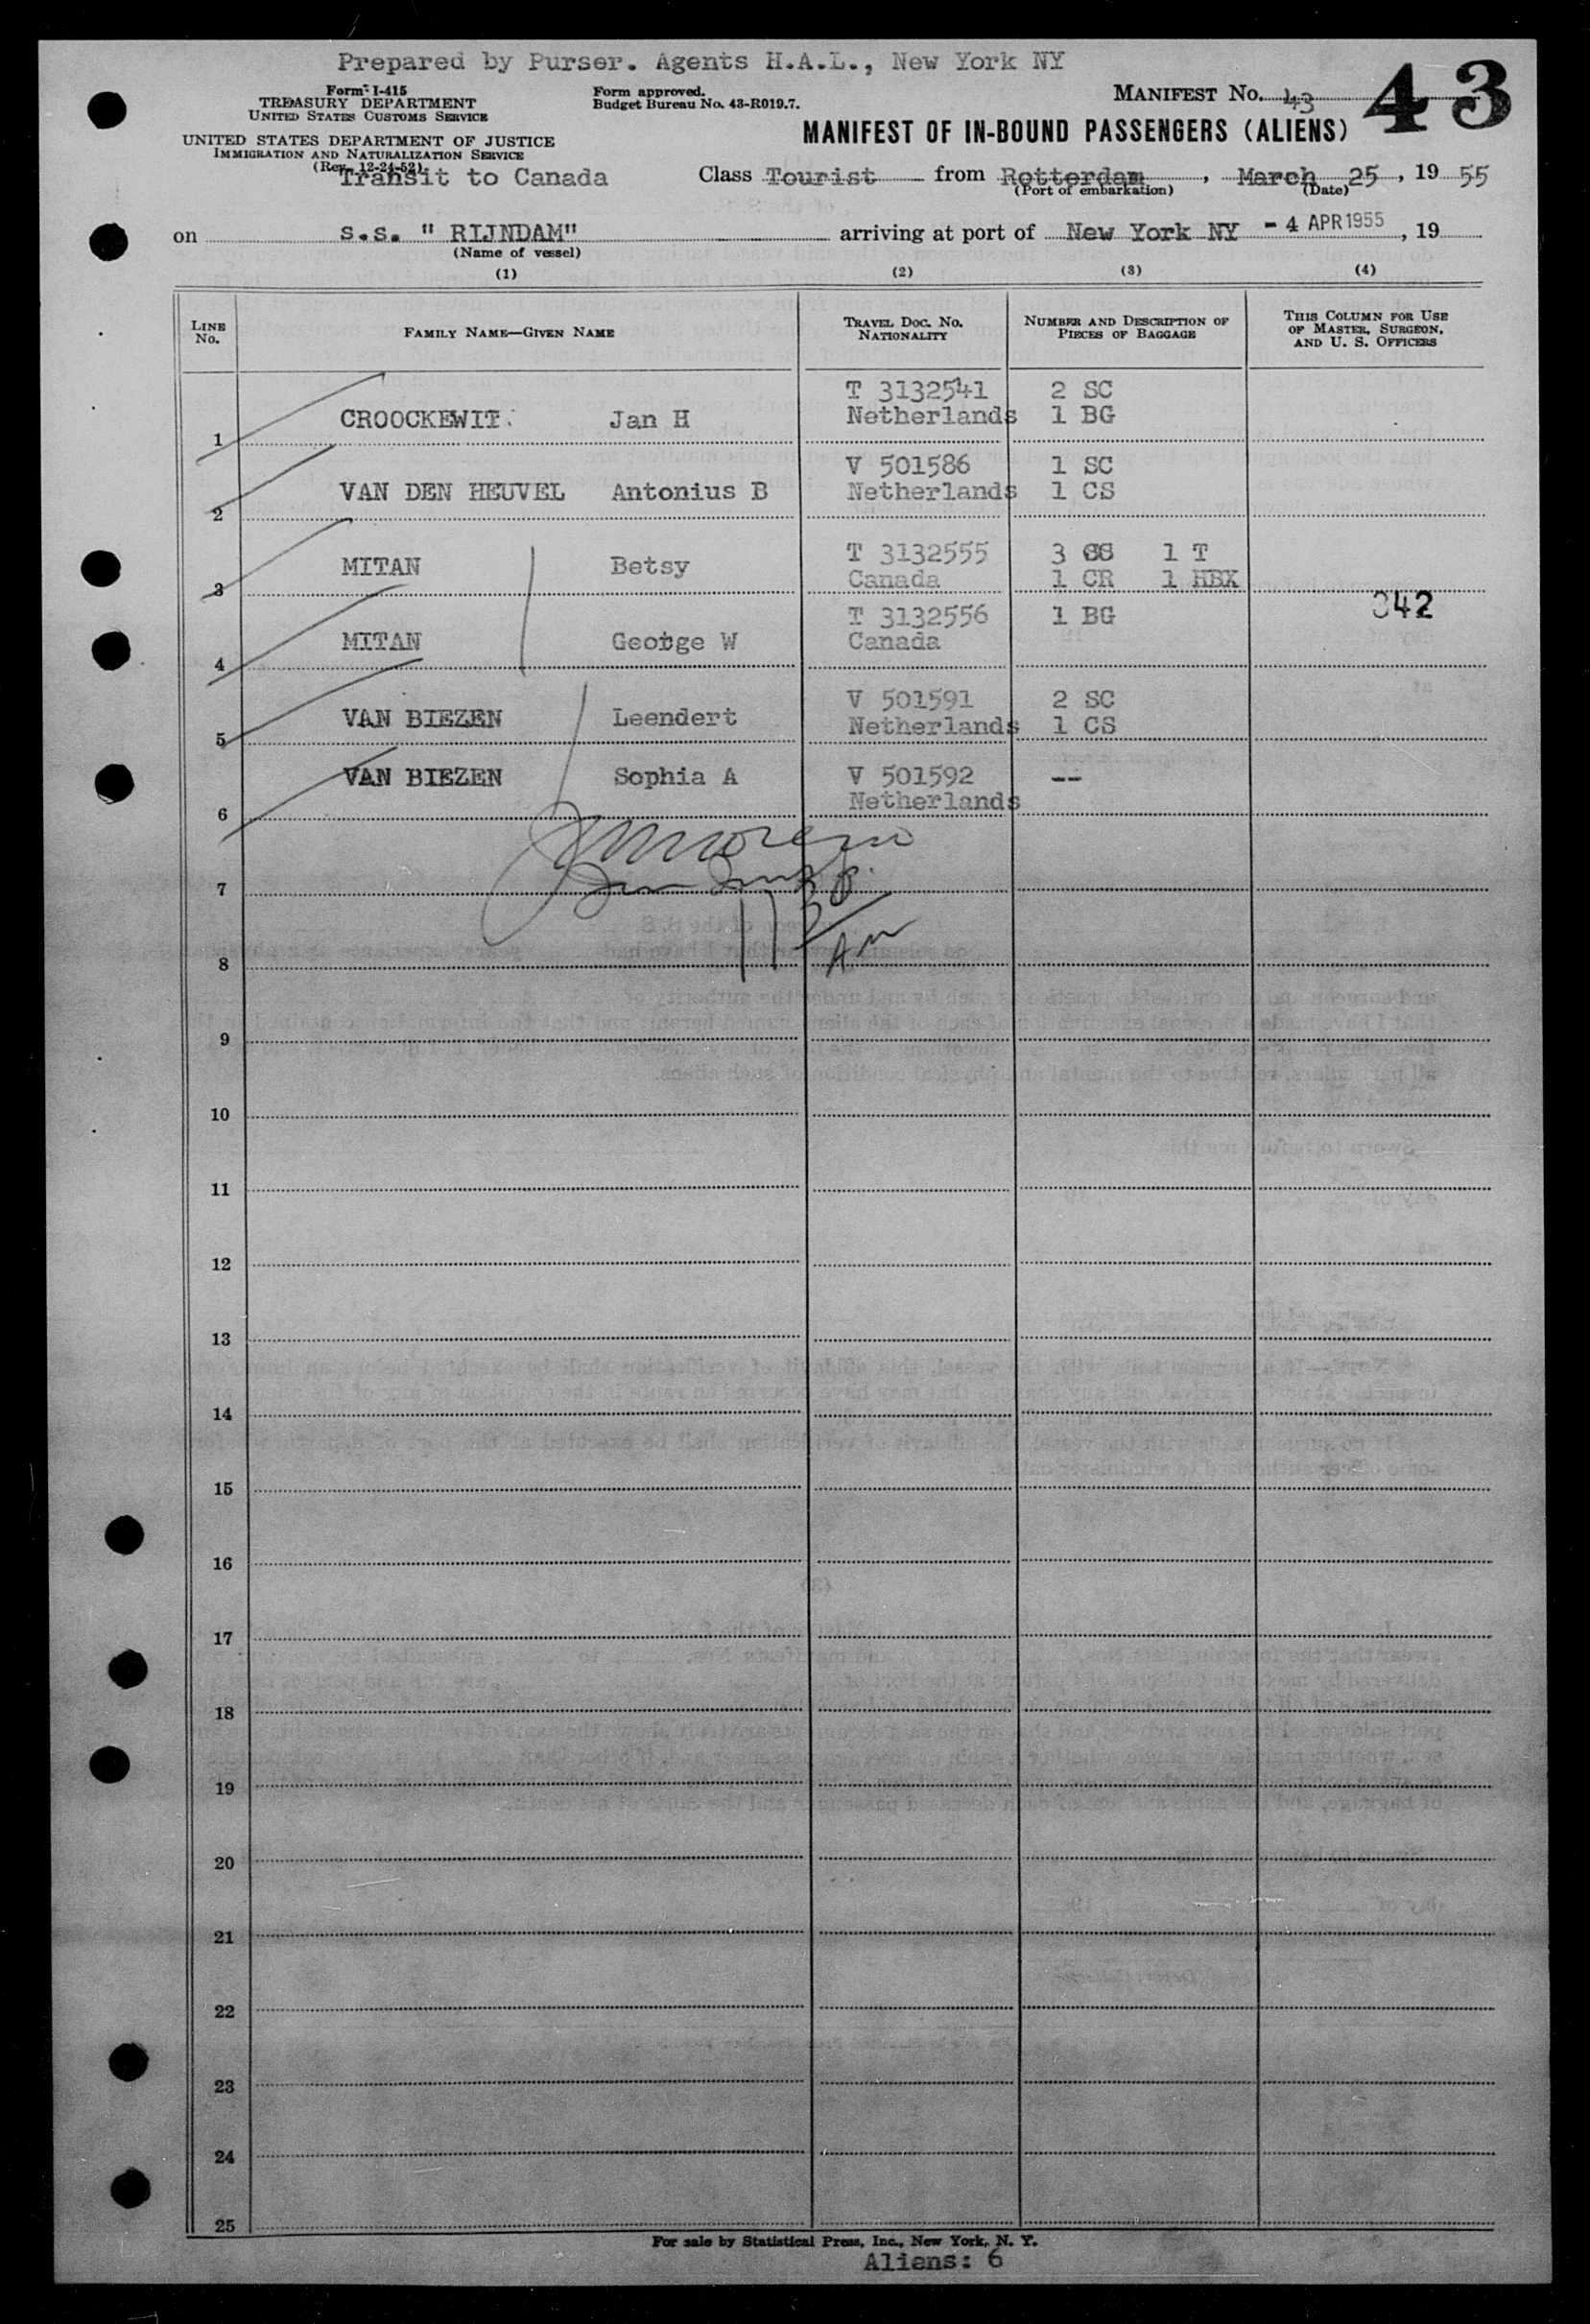 Prepared by Purser. Agents H.A.L., New York NY
Form I-415
TREASURY DEPARTMENT
UNITED STATES CUSTOMS SERVICE
UNITED STATES DEPARTMENT OF JUSTICE
IMMIGRATION AND NATURALIZATION SERVICE
(Rev. 12-24-52)
Form approved.
Budget Bureau No. 43-R019.7.
MANIFEST No. 43
43
MANIFEST OF IN-BOUND PASSENGERS (ALIENS)
Transit to Canada Class Tourist from Rotterdam, March 25, 19 55
(Port of embarkation) (Date)
on s.s. " RIJNDAM" arriving at port of New York NY - 4 APR 1955, 19
(Name of vessel)
(1) (2) (3) (4)
LINE No. FAMILY NAME—GIVEN NAME TRAVEL DOC. NO. NATIONALITY NUMBER AND DESCRIPTION OF PIECES OF BAGGAGE THIS COLUMN FOR USE OF MASTER, SURGEON, AND U. S. OFFICERS
T 3132541 2 SC
1 CROOCKEWIT. Jan H Netherlands 1 BG
V 501586 1 SC
2 VAN DEN HEUVEL Antonius B Netherlands 1 CS
T 3132555 3 1 T
3 MITAN Betsy Canada 1 CR 1 HBX
342
T 3132556 1 BG
4 MITAN George W Canada
V 501591 2 SC
5 VAN BIEZEN Leendert Netherlands 1 CS
VAN BIEZEN Sophia A V 501592 --
6 Netherlands
7
8
9
10
11
12
13
14
15
16
17
18
19
20
21
22
23
24
25
For sale by Statistical Press, Inc., New York, N. Y.
Aliens: 6